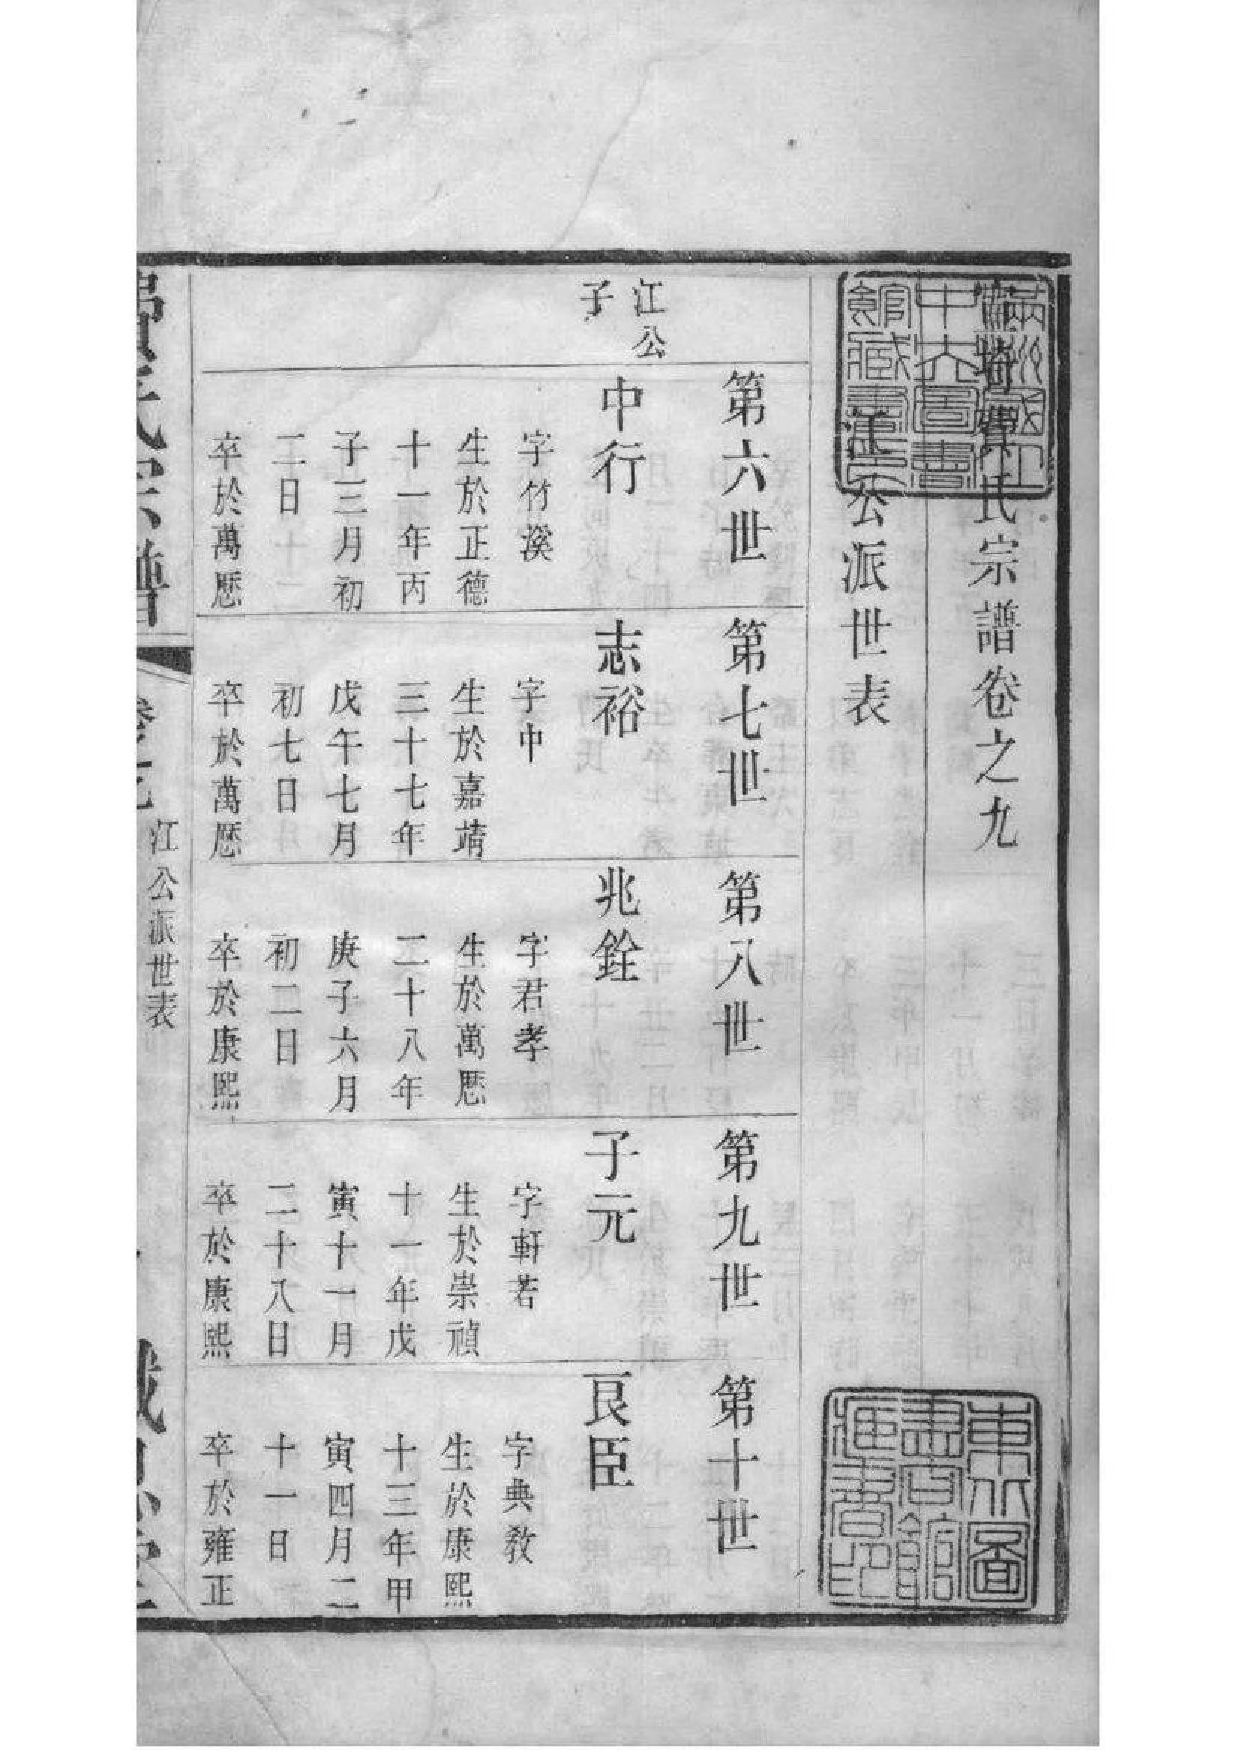 滿洲國立
中央圖書
館藏書印
費氏宗譜卷之九
江公派世表
江公
子
第六世
中行
字竹溪
生於正德
十一年丙
子三月初
二日
卒於萬厯
第七世
志裕
字中
生於嘉靖
三十七年
戊午七月
初七日
卒於萬厯
第八世
兆銓
字君孝
生於萬厯
二十八年
庚子六月
初二日
卒於康熙
第九世
子元
字軒若
生於崇禎
十一年戊
寅十一月
二十八日
卒於康熙
第十世
艮臣
字典敎
生於康熙
十三年甲
寅四月二
十一日
卒於雍正
東北圖
書館
藏書印
費氏宗譜
卷之九
江公派世表